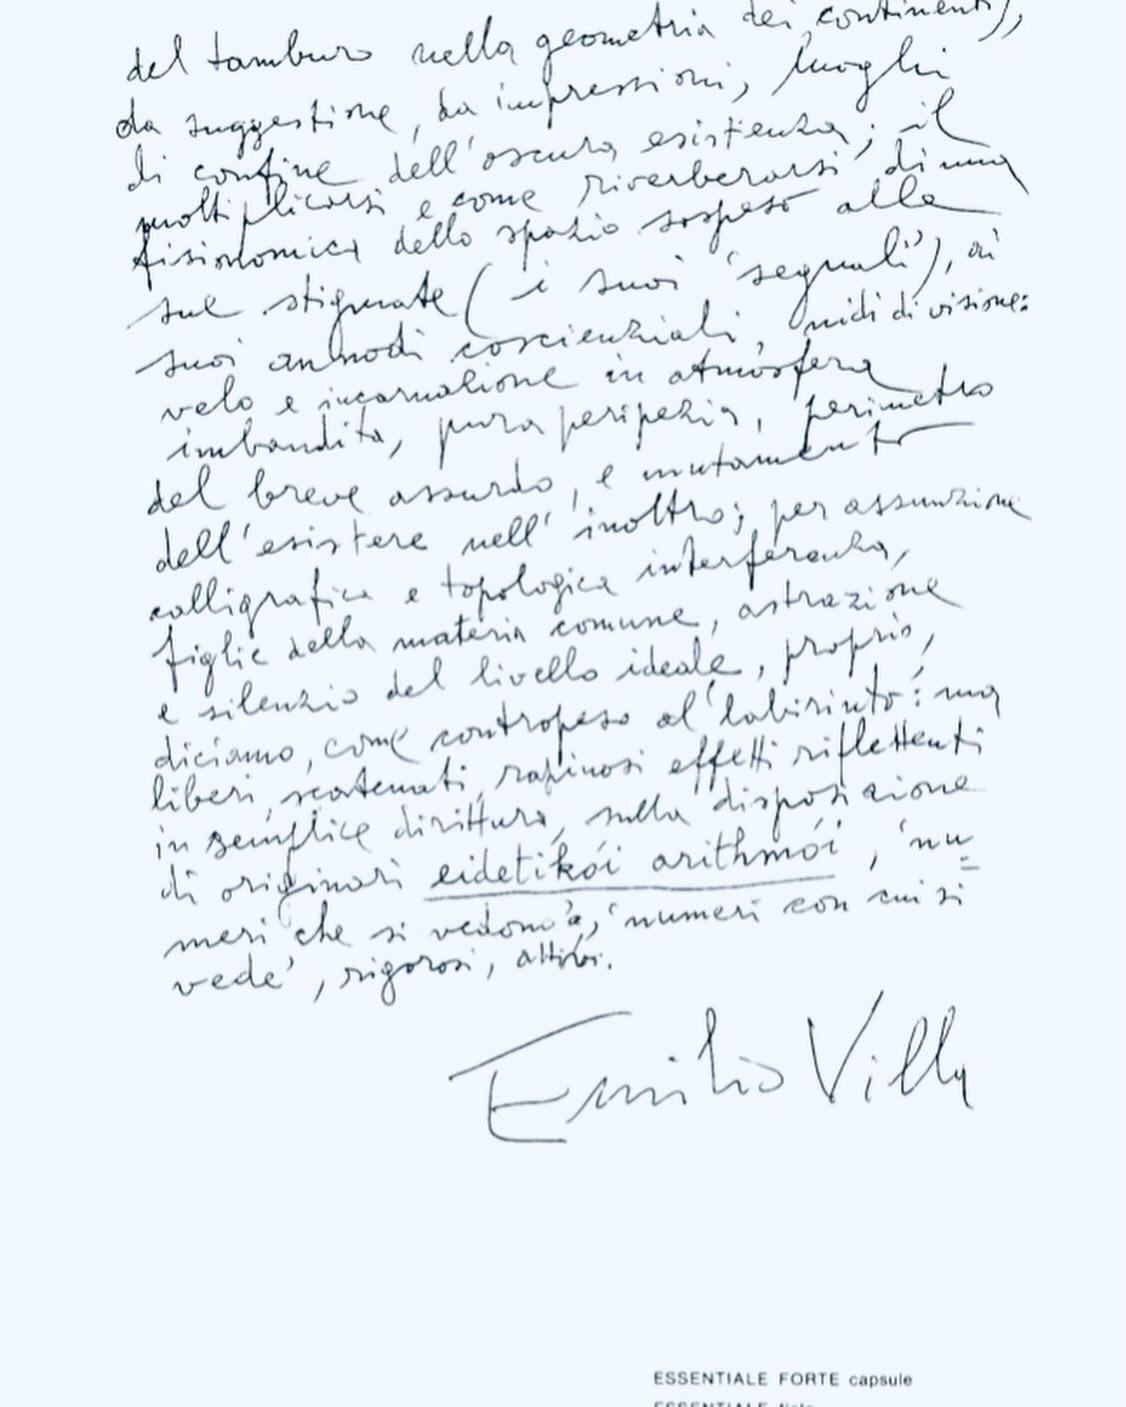 del tamburo nella geometria dei continenti),
da suggestione, da impressioni,
di confine dell'oscura esistenza; il
moltiplicarsi e come riverberarsi di una
fisionomica dello spazio sospeso alle
sue stigmate (i suoi 'segnali'), ai
suoi annodi coscienziali, nidi di visione:
velo e incarnazione in atmosfera
imbandita, pura peripezia, perimetro
del breve assurdo, e mutamento
dell'esistere nell'inoltro; per assunzione
calligrafica e topologica interferenza,
figlie della materia comune, astrazione
e silenzio del livello ideale, proprio,
diciamo, come contropeso al labirinto: ma
liberi, scatenati, rapinosi effetti riflettenti
in semplice dirittura, sulla disposizione
di originari eidetikói arithmói, 'nu=
meri che si vedono', 'numeri con cui si
vede', rigorosi, attivi.
Emilio Villa
ESSENTIALE FORTE capsule